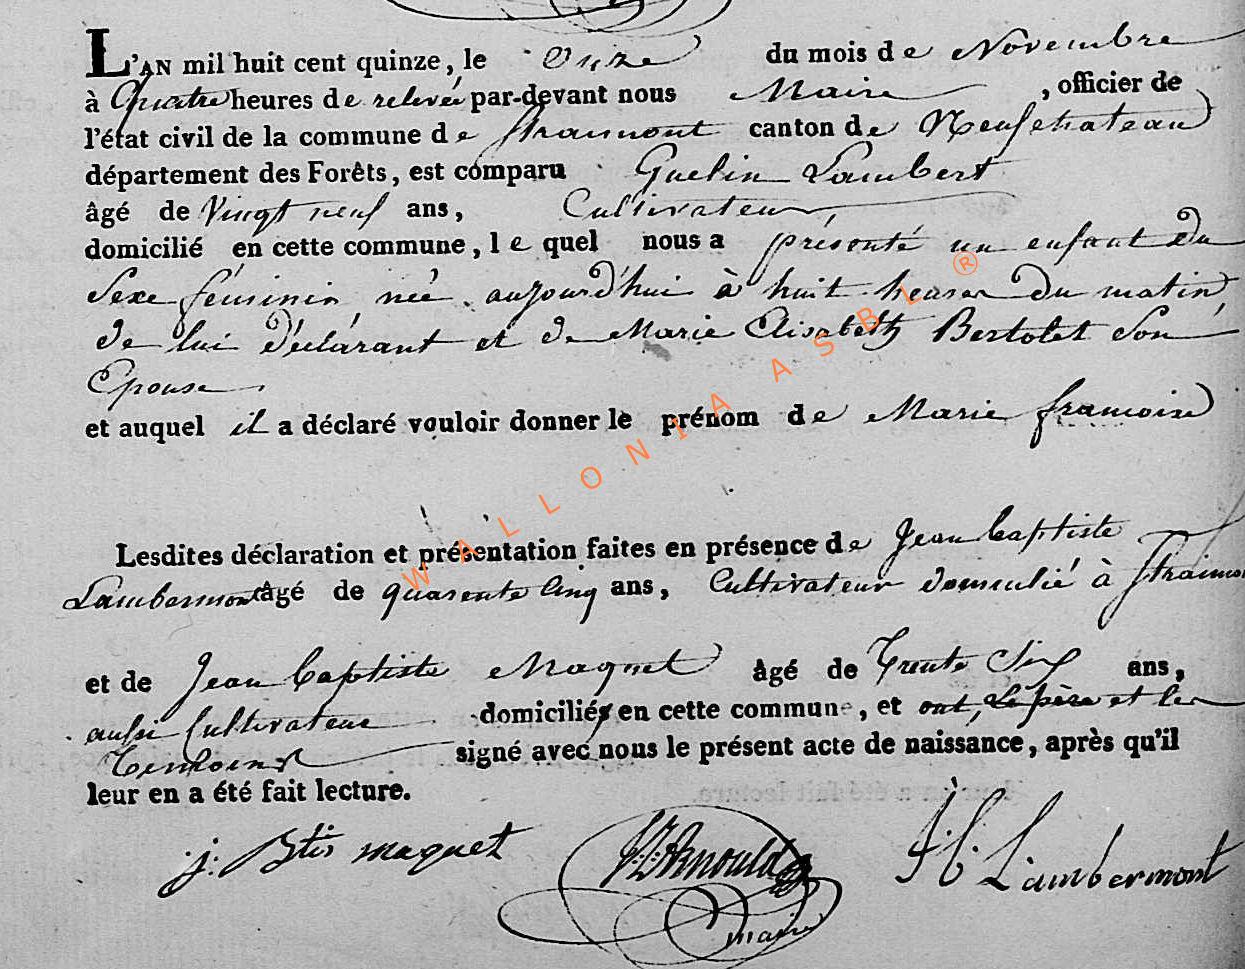 L'AN mil huit cent quinze, le Onze du mois de Novembre
à Quatre heures de relevée par-devant nous Maire , officier de
l'état civil de la commune de Straimont canton de Neufchateau
département des Forêts, est comparu Guelin Lambert
âgé de Vingt neuf ans, Cultivateur,
domicilié en cette commune, le quel nous a présenté un enfant du
Sexe féminin, née aujourd'hui à huit heures du matin
de lui déclarant et de Marie Elisabeth Bertolet Son
Epouse
et auquel il a déclaré vouloir donner le prénom de Marie francoise
Lesdites déclaration et présentation faites en présence de Jean baptiste
Lambermont âgé de quarente cinq ans, Cultivateur domicilié à Straimont
et de Jean baptiste Maquet âgé de Trente Six ans,
aussi Cultivateur domiciliés en cette commune, et ont, le père et les
Temoins signé avec nous le présent acte de naissance, après qu'il
leur en a été fait lecture.
j: Btis maquet J:J: Arnould J b Lambermont
maire
WALLONIA ASBL ®